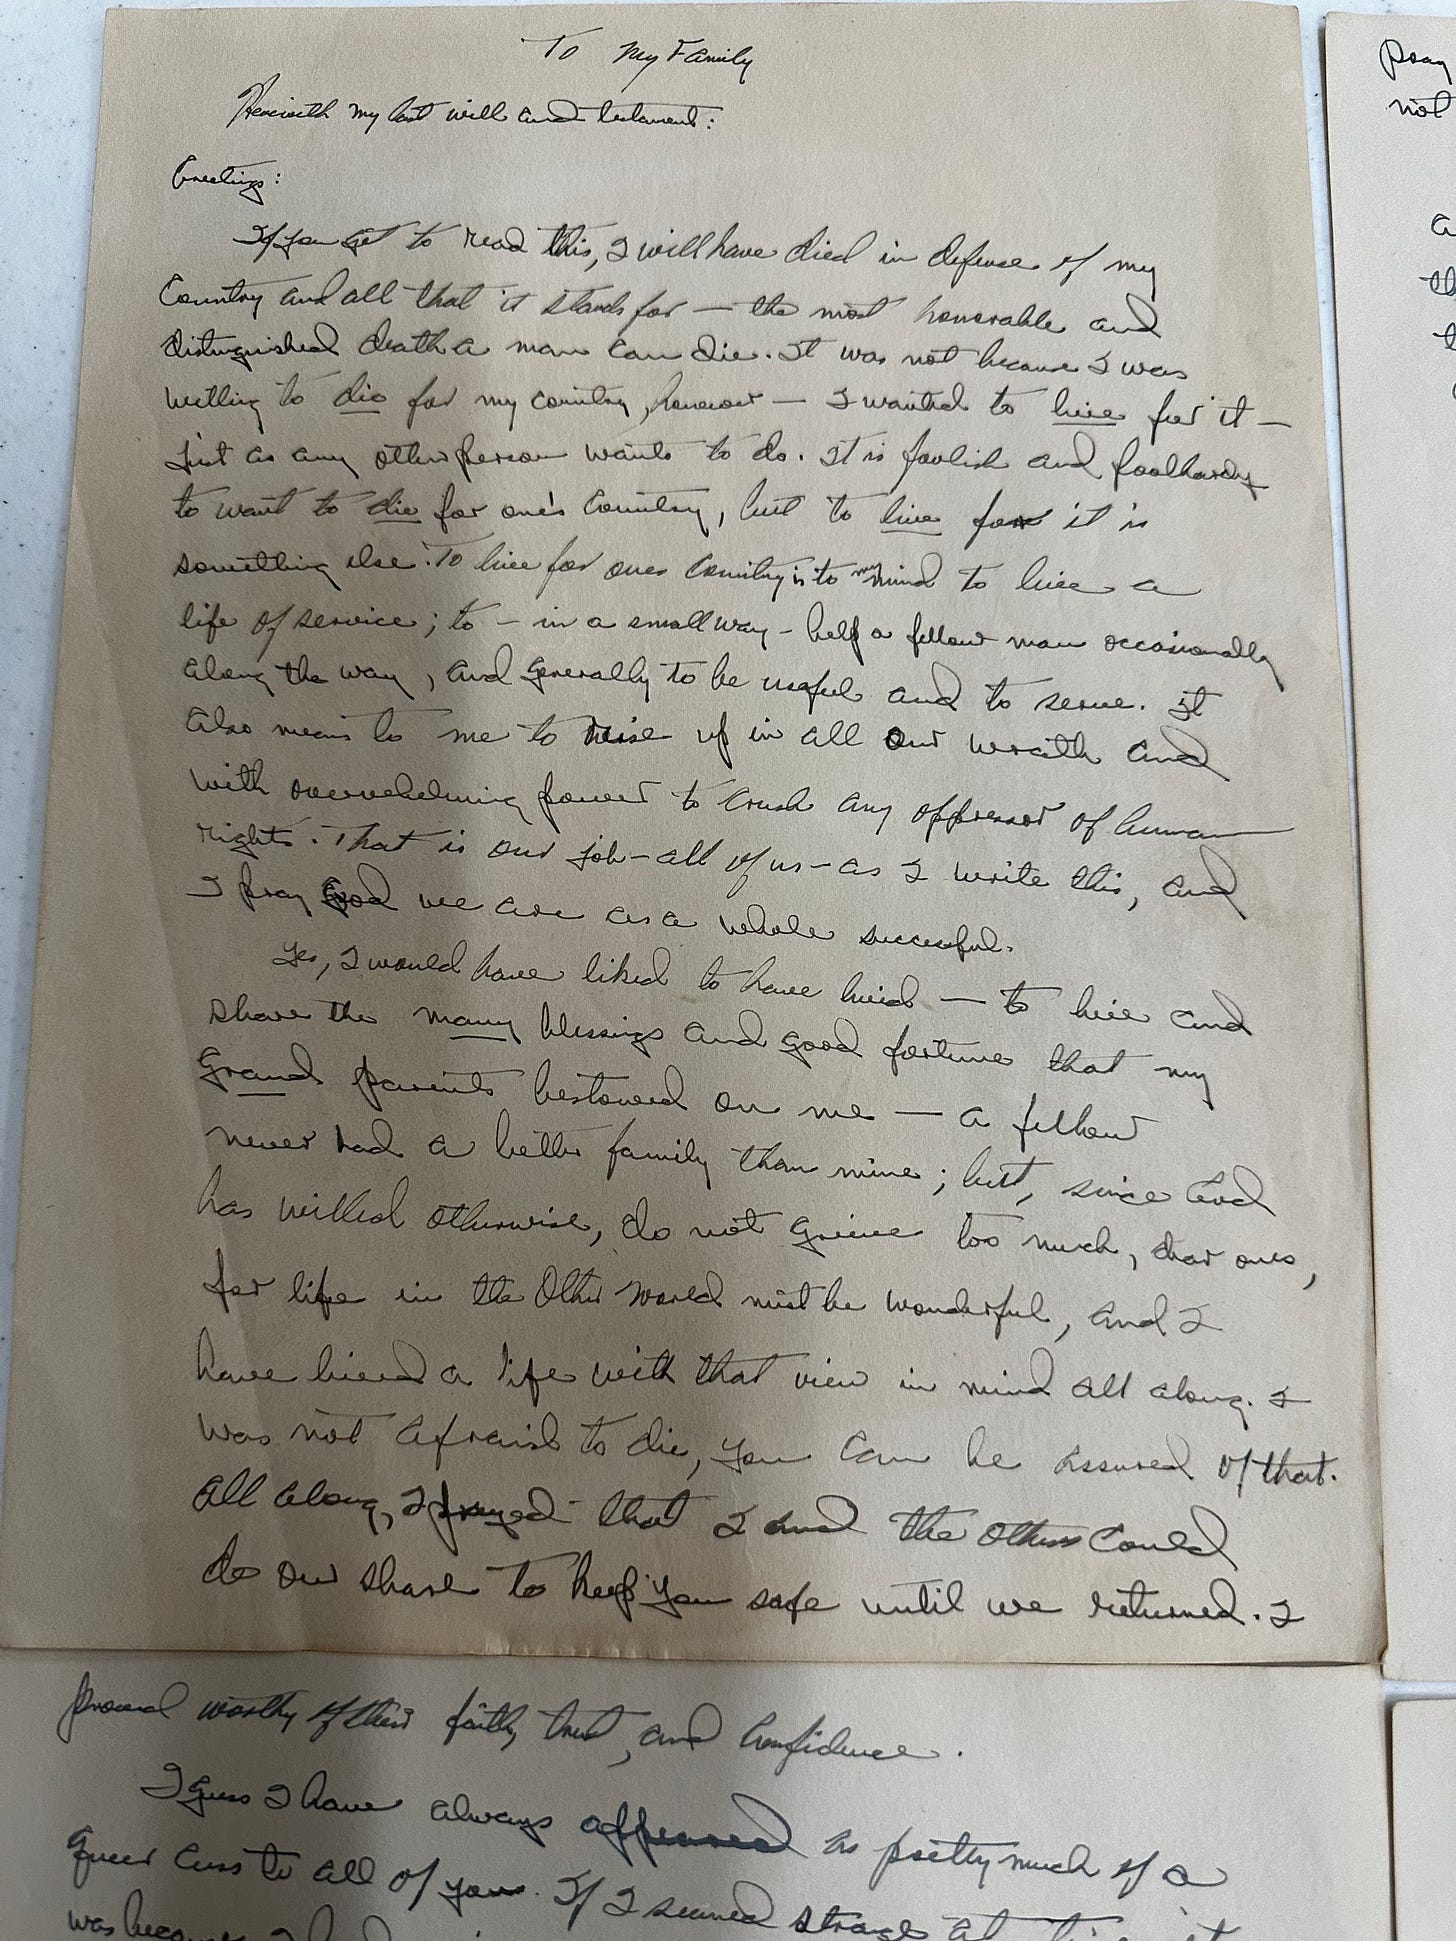 To My Family
Herewith my last will and testament:
Greetings:
If you get to read this, I will have died in defense of my
Country and all that it stands for — the most honorable and
distinguished death a man can die. It was not because I was
willing to die for my country, however — I wanted to live for it —
just as any other person wants to do. It is foolish and foolhardy
to want to die for one's country, but to live for it is
something else. To live for ones country is to my mind to live a
life of service; to - in a small way - help a fellow man occasionally
along the way, and generally to be useful and to serve. It
also means to me to rise up in all our wrath and
with overwhelming power to crush any oppressor of human
rights. That is our job - all of us - as I write this, and
I pray God we are as a whole successful.
Yes, I would have liked to have lived — to live and
share the many blessings and good fortune that my
Grand parents bestowed on me — a fellow
never had a better family than mine; but, since God
has willed otherwise, do not grieve too much, dear ones,
for life in the Other World must be wonderful, and I
have lived a life with that view in mind all along. I
was not afraid to die, you can be assured of that.
All along, I prayed that I and the others could
do our share to keep you safe until we returned. I
proved worthy of their faith, trust, and confidence.
I guess I have always appeared as pretty much of a
queer cuss to all of you. If I seemed strange at times it
was because I had
pray
not